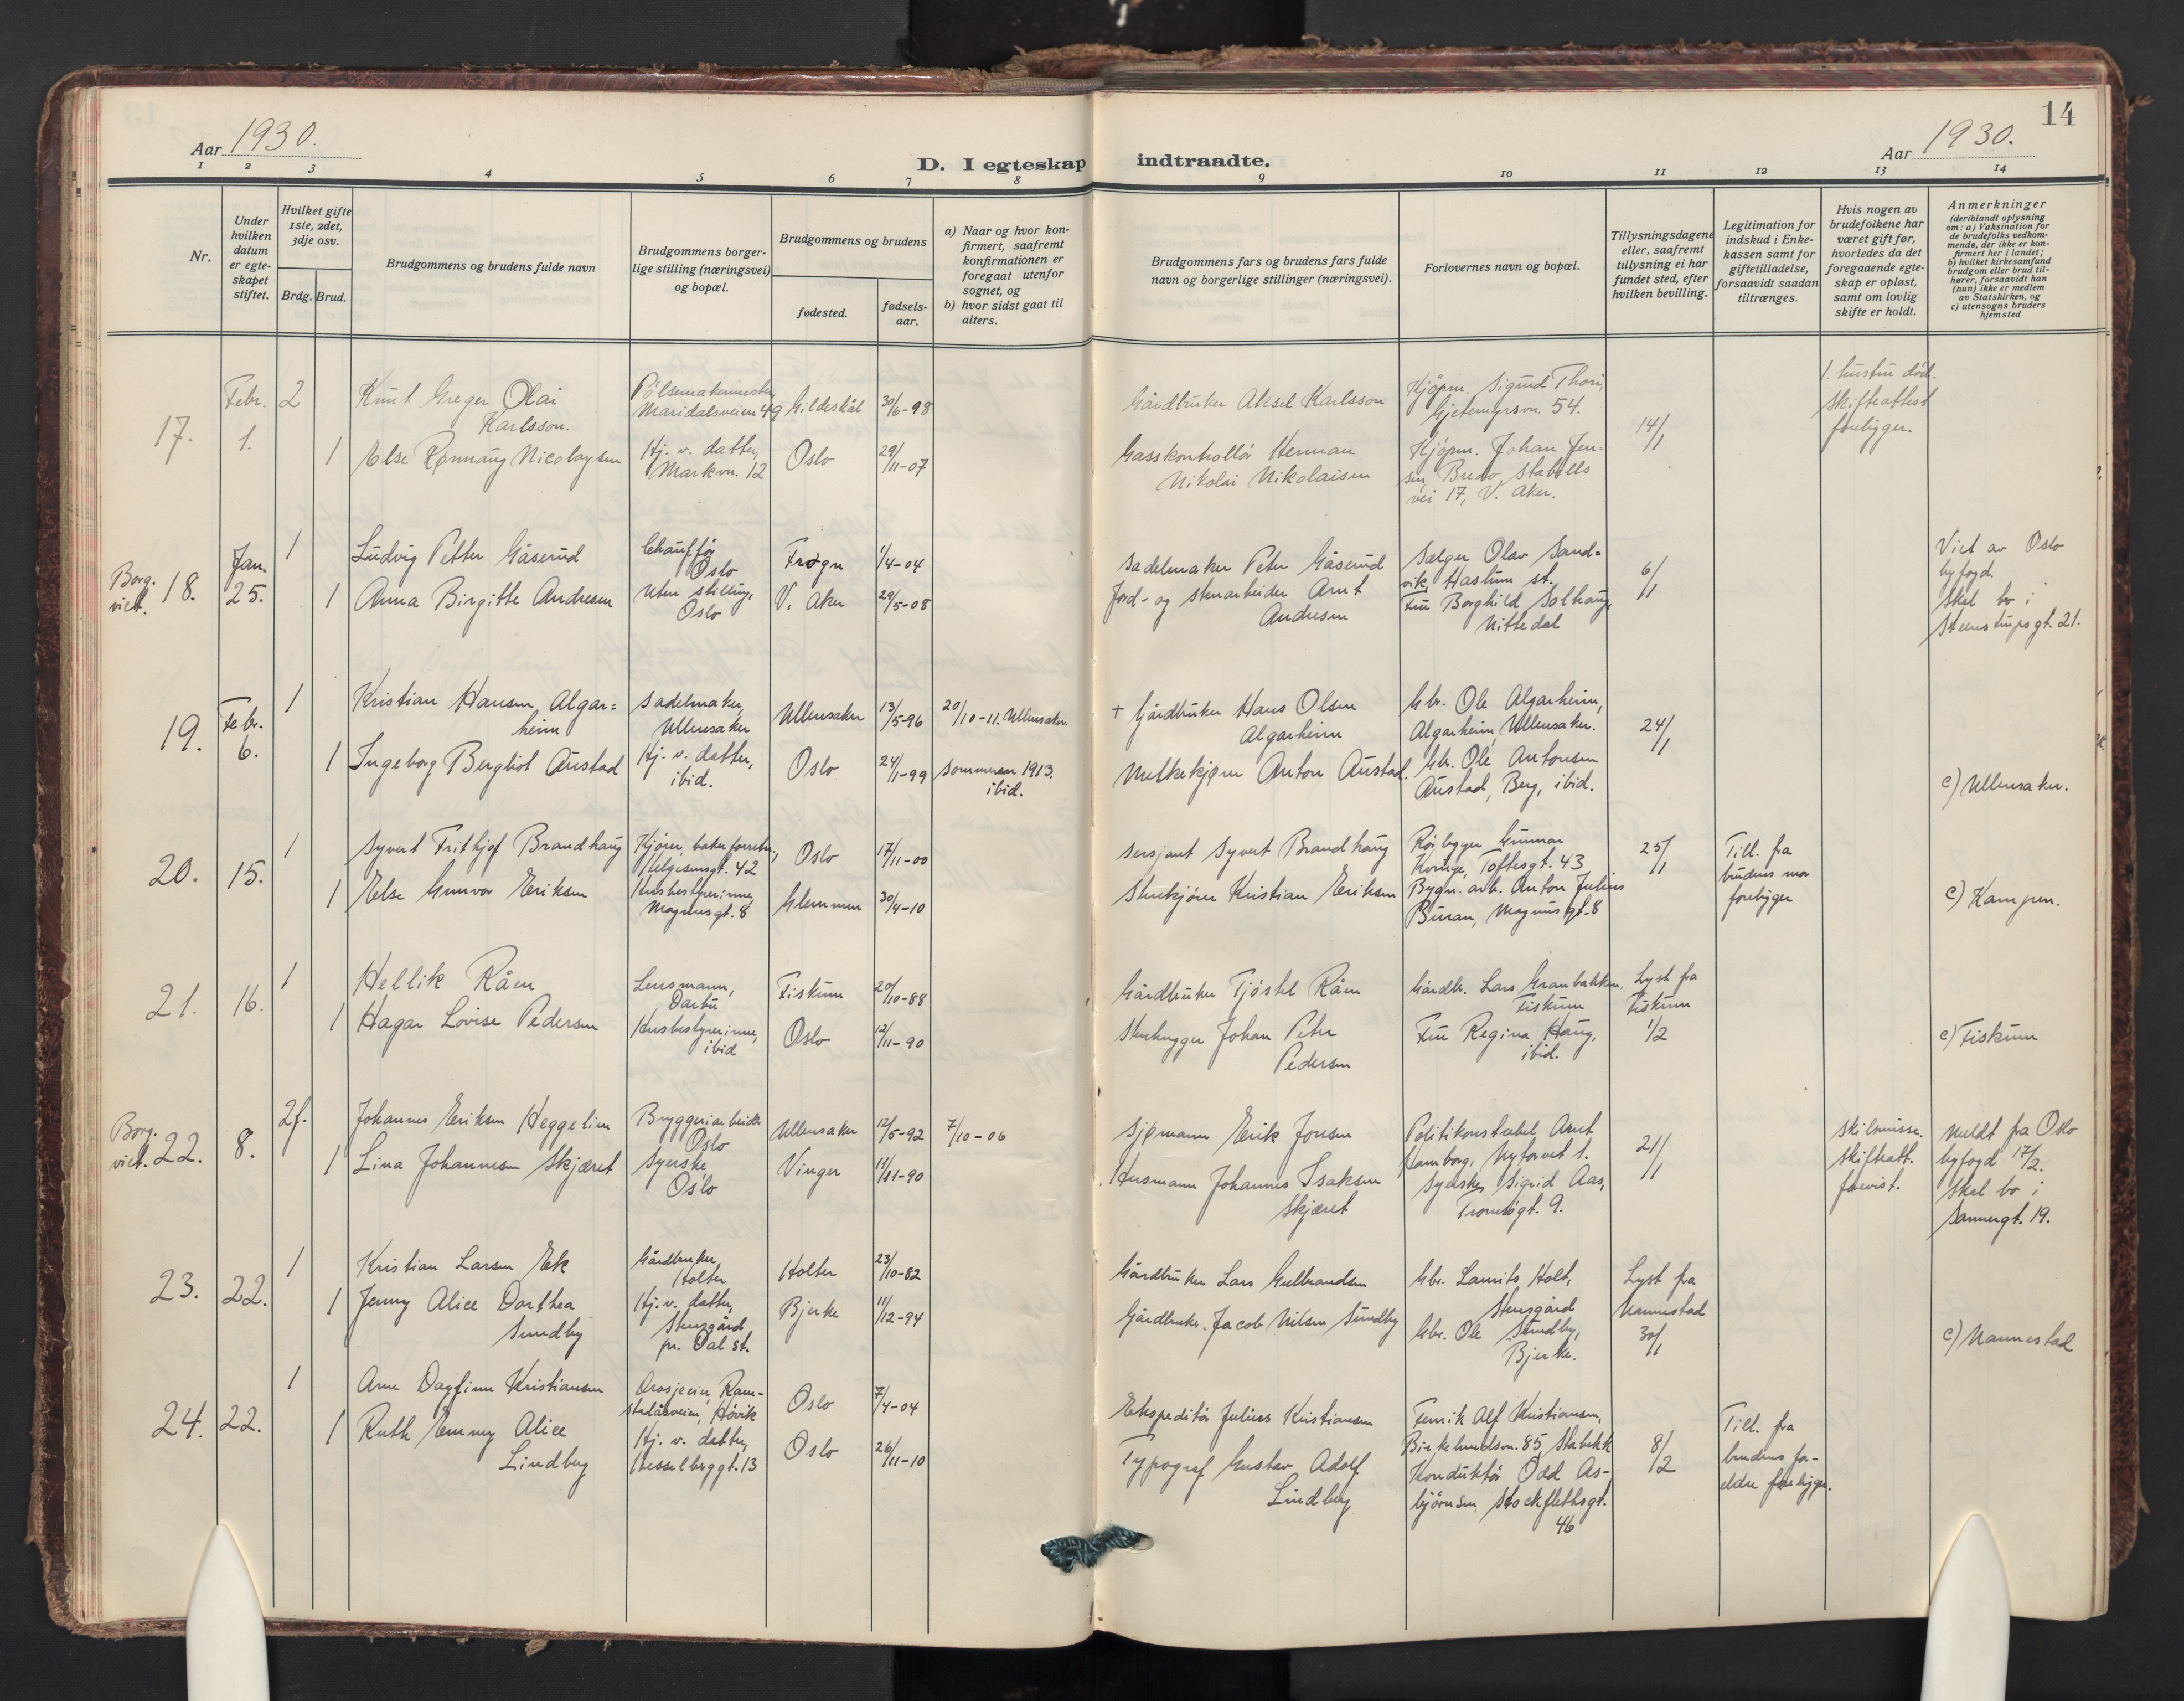 14
Aar 1930.
D. I egteskap indtraadte.
Aar 1930.
1 2 3 4 5 6 7 8 9 10 11 12 13 14
Nr.
Under
hvilken
datum
er egte-
skapet
stiftet.
Hvilket gifte
1ste, 2det,
3dje osv.
Brdg. Brud.
Brudgommens og brudens fulde navn
Brudgommens borger-
lige stilling (næringsvei)
og bopæl.
Brudgommens og brudens
fødested.
fødsels-
aar.
a) Naar og hvor kon-
firmert, saafremt
konfirmationen er
foregaat utenfor
sognet, og
b) hvor sidst gaat til
alters.
Brudgommens fars og brudens fars fulde
navn og borgerlige stillinger (næringsvei).
Forlovernes navn og bopæl.
Tillysningsdagene
eller, saafremt
tillysning ei har
fundet sted, efter
hvilken bevilling.
Legitimation for
indskud i Enke-
kassen samt for
giftetilladelse,
forsaavidt saadan
tiltrænges.
Hvis nogen av
brudefolkene har
været gift før,
hvorledes da det
foregaaende egte-
skap er opløst,
samt om lovlig
skifte er holdt.
Anmerkninger
(deriblandt oplysning
om: a) Vaksination for
de brudefolks vedkom-
mende, der ikke er kon-
firmert her i landet;
b) hvilket kirkesamfund
brudgom eller brud til-
hører, forsaavidt han
(hun) ikke er medlem
av Statskirken, og
c) utensogns bruders
hjemsted
17.
Febr.
1.
2
Knut Greger Olai
Karlsson.
Pölsemakermester
Maridalsveien 49
Gildeskål
30/6-98
Gårdbruker Aksel Karlsson
Kjöpm. Sigurd Thori,
Gjetemyrsvn. 54.
14/1
1. hustru död.
Skifteattest
foreligger.
1
Else Rønnaug Nicolaysen
Hj. v. datter,
Markvn. 12
Oslo
29/11-07
Gasskontrollör Herman
Nikolai Nikolaisen
Kjöpm. Johan Jen-
sen, Bredo Stabells
vei 17, V. Aker.
Borg.
viet.
18.
Jan.
25.
1
Ludvig Petter Gåserud
Chauffør
Oslo
Frogn
1/4-04
Sadelmaker Peter Gåserud
Sælger Olav Sand-
vik, Haslum st.
6/1
Viet av Oslo
byfogd.
Skal bo i
Steenstrupsgt. 21.
1
Anna Birgitte Andresen
Uten stilling,
Oslo
V. Aker
29/5-08
Jord- og stenarbeider Arnt
Andresen
Fru Borghild Solhaug,
Nittedal
19.
Febr.
6.
1
Kristian Hansen Algar=
heim
Sadelmaker,
Ullensaker
Ullensaker
13/5-96
20/10-11. Ullensaker.
+ Gårdbruker Hans Olsen
Algarheim
Gbr. Ole Algarheim,
Algarheim, Ullensaker.
24/1
1
Ingeborg Bergliot Austad
Hj. v. datter,
ibid.
Oslo
24/1-99
Sommeren 1913.
ibid.
Melkekjører Anton Austad.
Gbr. Ole Antonsen
Austad, Berg, ibid.
c) Ullensaker.
20.
15.
1
Syvert Frithjof Brandhaug
Kjører, bakerforretn.,
Helgesensgt. 42
Oslo
17/11-00
Sersjant Syvert Brandhaug
Rörlegger Gunnar
Toftesgt. 43
25/1
Till. fra
brudens mor
foreligger
1
Else Gunvor Eriksen
Husbestyrerinne,
Magnusgt. 8
Glemmen
30/4-10
Stenkjører Kristian Eriksen
Bygn. arb. Anton Julius
Buran, Magnusgt. 8
c) Kampen.
21.
16.
1
Hellik Råen
Lensmann,
Darbu
Fiskum
20/10-88
Gårdbruker Tjöstel Råen
Gårdbr. Lars Granbakken,
Fiskum
Lyst fra
Fiskum
1/2
1
Hagar Lovise Pedersen
Husbestyrerinne,
ibid
Oslo
12/11-90
Stenhugger Johan Peter
Pedersen
Fru Regina Haug,
ibid.
c) Fiskum
Borg.
viet.
22.
8.
2f.
Johannes Eriksen Heggelien
Bryggeriarbeider
Oslo
Ullensaker
12/5-92
7/10-06
Sjømann Erik Jonsen
Politikonstabel Arnt
Hamborg, Nytorvet 1.
21/1
Skilsmisse.
Skifteatt.
forevist.
Meldt fra Oslo
byfogd 17/2.
Skal bo i
Sannergt. 19.
1
Lina Johannesen Skjæret
Syerske
Oslo
Vinger
11/11-90
Husmann Johannes Isaksen
Skjæret
Syerske Sigrid Aas,
Tromsøgt. 9.
23.
22.
1
Kristian Larsen Ek
Gårdbruker,
Holter
Holter
23/10-82
Gårdbruker Lars Gulbrandsen
Gbr. Laurits Holt,
Stensgård
Lyst fra
Nannestad
30/1
1
Jenny Alice Dorthea
Sundby
Hj. v. datter,
Stensgård
pr. Dal st.
Bjerke
11/12-94
Gårdbruker Jacob Nilsen Sundby
Gbr. Ole Sundby,
Bjerke.
c) Nannestad
24.
22.
1
Arne Dagfinn Kristiansen
Drosjeeier, Ram-
stadåsveien, Hövik
Oslo
7/4-04
Ekspeditör Julius Kristiansen
Fenrik Alf Kristiansen,
Birkelundsvn. 85, Stabekk
8/2
Till. fra
brudens for-
eldre foreligger.
1
Ruth Emmy Alice
Lindberg
Hj. v. datter,
Hesselberggt. 13
Oslo
26/11-10
Typograf Gustav Adolf
Lindberg
Konduktör Odd As-
björnsen, Stockflethsgt.
46